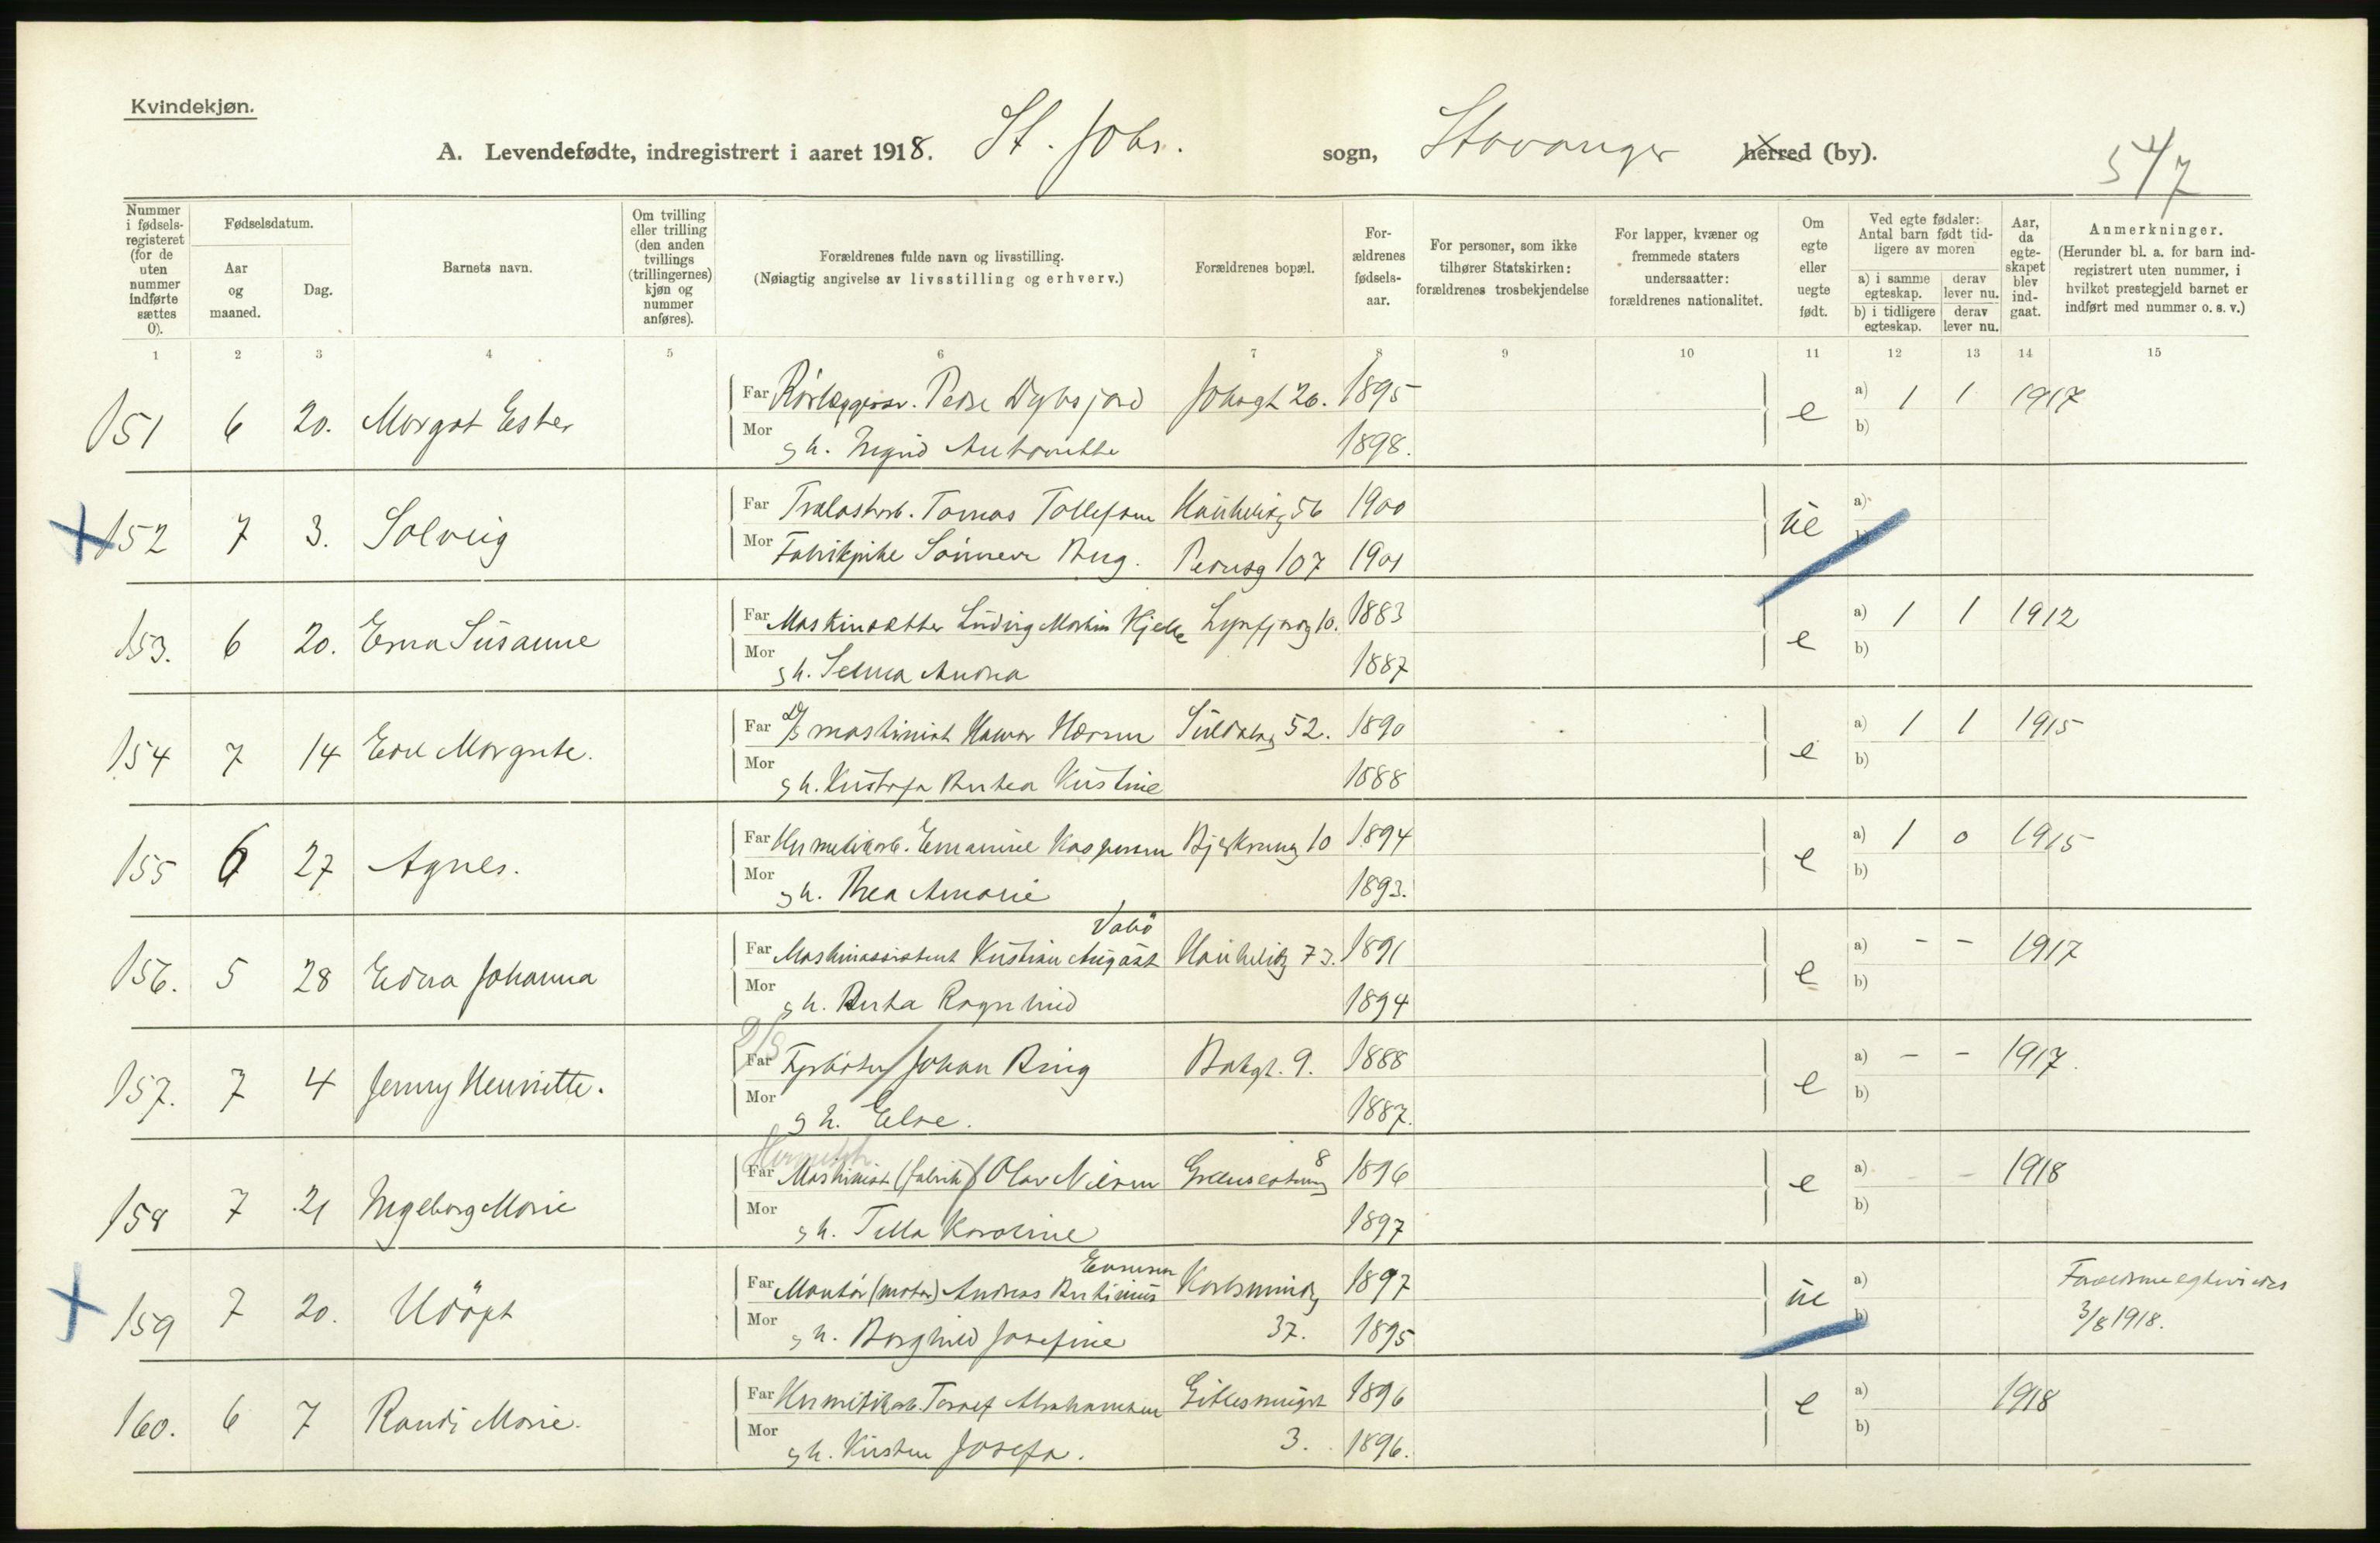 Kvindekjøn.
A. Levendefødte, indregistrert i aaret 1918. St. Johs. sogn, Stavanger herred (by).
5 4/7
Nummer i fødselsregisteret (for de uten nummer indførte sættes 0).
Fødselsdatum.
Aar og maaned.
Dag.
Barnets navn.
Om tvilling eller trilling (den anden tvillings (trillingernes) kjøn og nummer anføres).
Forældrenes fulde navn og livsstilling.
(Nøiagtig angivelse av livsstilling og erhverv.)
Forældrenes bopæl.
Forældrenes fødselsaar.
For personer, som ikke tilhører Statskirken: forældrenes trosbekjendelse
For lapper, kvæner og fremmede staters undersaatter: forældrenes nationalitet.
Om egte eller uegte født.
Ved egte fødsler: Antal barn født tidligere av moren
a) i samme egteskap. derav lever nu.
b) i tidligere egteskap. derav lever nu.
Aar, da egteskapet blev indgaat.
Anmerkninger.
(Herunder bl. a. for barn indregistrert uten nummer, i hvilket prestegjeld barnet er indført med nummer o. s. v.)
1 2 3 4 5 6 7 8 9 10 11 12 13 14 15
151 6 20. Margot Ester Far Peder Johsgt 26. 1895 e a) 1 1 1917
Mor g h. Ingrid Antonette 1898. b)
152 7 3. Solveig Far Trælastarb. Tomas Tollefsen Haukeligt 56 1900 ue a)
Mor Fabrikpike Berg. Pedersg 107 1901 b)
153. 6 20. Erna Susanne Far Ludvig Martin Lysefjordg 10. 1883 e a) 1 1 1912
Mor g h. Selma Andrea 1887 b)
154 7 14 Edel Margrete. Far D/S maskinist Suldalsg 52. 1890 e a) 1 1 1915
Mor g h. Kristine 1888 b)
155 6 27 Agnes. Far Hermetikarb. Kaspersen 10 1894 e a) 1 0 1915
Mor g h. Thea Amalie 1893. b)
Vabö
156. 5 28 Edna Johanna Far Maskinassistent Kristian August Haukelig 73. 1891 e a) - - 1917
Mor g h. Berta Ragnhild 1894 b)
D/S
157. 7 4 Jenny Henriette. Far Fyrböter Johan Ring Bakgt. 9. 1888 e a) - - 1917.
Mor g h. Else. 1887. b)
Hermetik
158 7 21 Ingeborg Marie Far Maskinist (fabrik) Olav Nilsen 8 1896 e a) - 1918
Mor g h. Tilla Karoline 1897 b)
159 7 20. Udöpt Far Montör (motor) Andreas 1897 ue a) Forældrene egteviedes
Mor g h. Borghild Josefine 37. 1895 b) 3/8 1918.
160. 6 7 Randi Marie. Far Hermetikarb. Abrahamsen 1896 e a) 1918
Mor g h. Kirsten Josefa. 3. 1896. b)